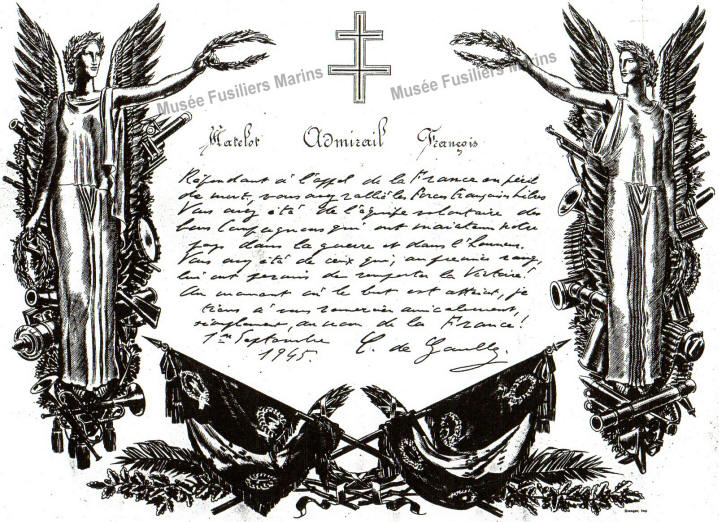 Musée Fusiliers Marins
Musée Fusiliers Marins
Matelot Admirail François
Répondant à l'appel de la France en péril
de mort, vous avez rallié les Forces Françaises Libres
Vous avez été de l'équipe volontaire des
bons Compagnons qui ont maintenu notre
pays dans la guerre et dans l'honneur.
Vous avez été de ceux qui, au premier rang,
lui ont permis de remporter la Victoire!
Au moment où le but est atteint, je
tiens à vous remercier amicalement,
simplement, au nom de la France!
1er Septembre
1945. C. de Gaulle.